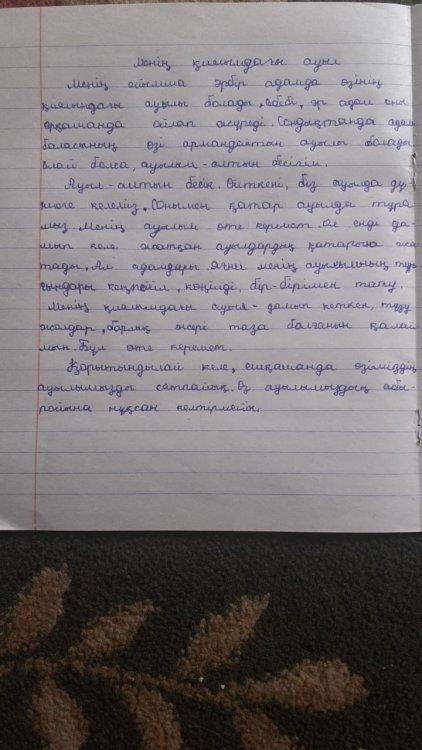 Менің қиялымдағы ауыл
Менің ойымша әрбір адамда өзінің
қиялындағы ауылы болады. Себебі, әр адам оны
әрқашанда ойлап жүреді. Сондықтанда адам
баласының өзі армандайтын ауылы болады.
Олай болса, ауылым - алтын бесігім.
Ауыл - алтын бесік. Өйткені, біз ауылда дү-
ниеге келеміз. Сонымен қатар ауылда тұра
мыз. Менің ауылым өте керемет. Ол енді да-
мып келе жатқан ауылдардың қатарына жа
тады. Ал адамдары. Яғни менің ауылымының тұр
ғындары кеңпейіл, көңілді, бір-бірімен тату.
Менің қиялымдағы ауыл - дамып кеткен, түзу
жолдар, барлық жері таза болғанын қалай
мын. Бұл өте керемет.
Қорытындылай келе, ешқашанда өзіміздің
ауылымызды сатпайық. Өз ауылымыздың абы-
ройына нұқсан келтірмейік.